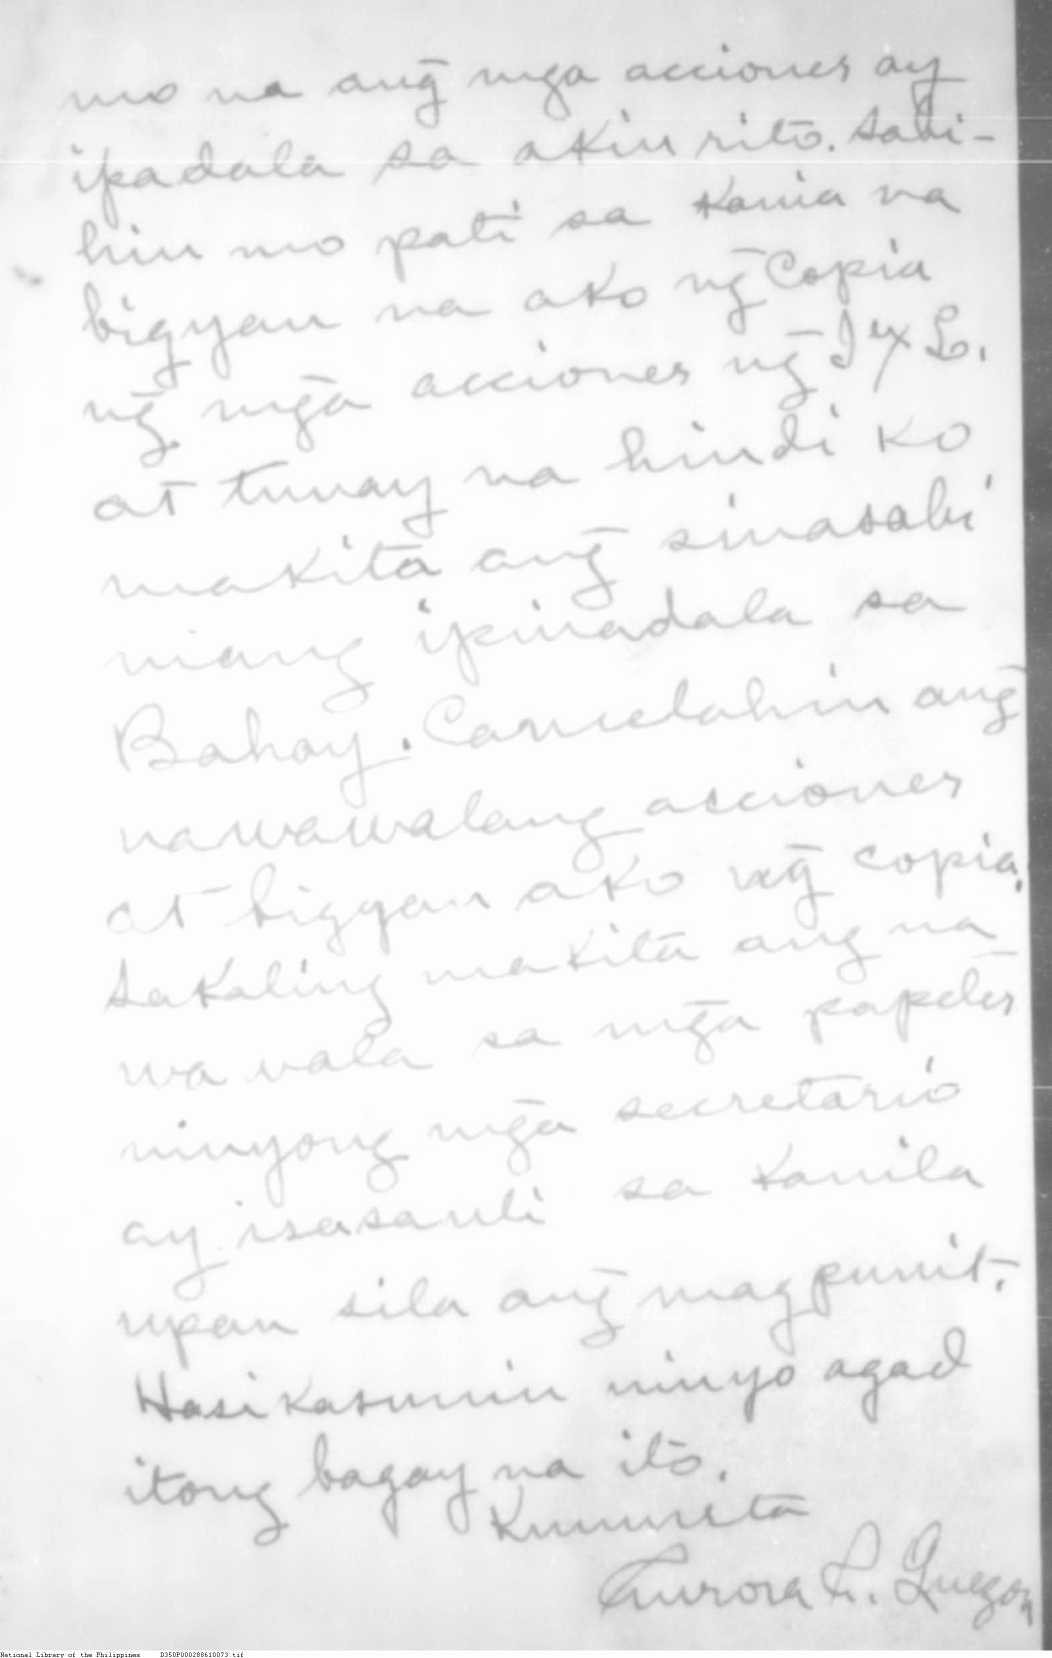 mo na ang̃ mga acciones ay
ipadala sa akin rito. Sabi-
hin mo pati sa kania na
bigyan na ako ng̃ Copia
ng̃ mg̃a acciones ng̃ I x L.
at tunay na hindi ko
makita ang̃ sinasabi
niang ipinadala sa
Bahay. Cancelahin ang̃
nawawalang acciones
at bigyan ako ng̃ copia.
Sakaling makita ang na-
wawala sa mg̃a papeles
ninyong mg̃a secretario
ay isasauli sa kanila
upan sila ang̃ magpunit.
Hasikasunin ninyo agad
itong bagay na ito.
Kumusta
Aurora A. Quezon
National Library of the Philippines D350P000288610073.tif